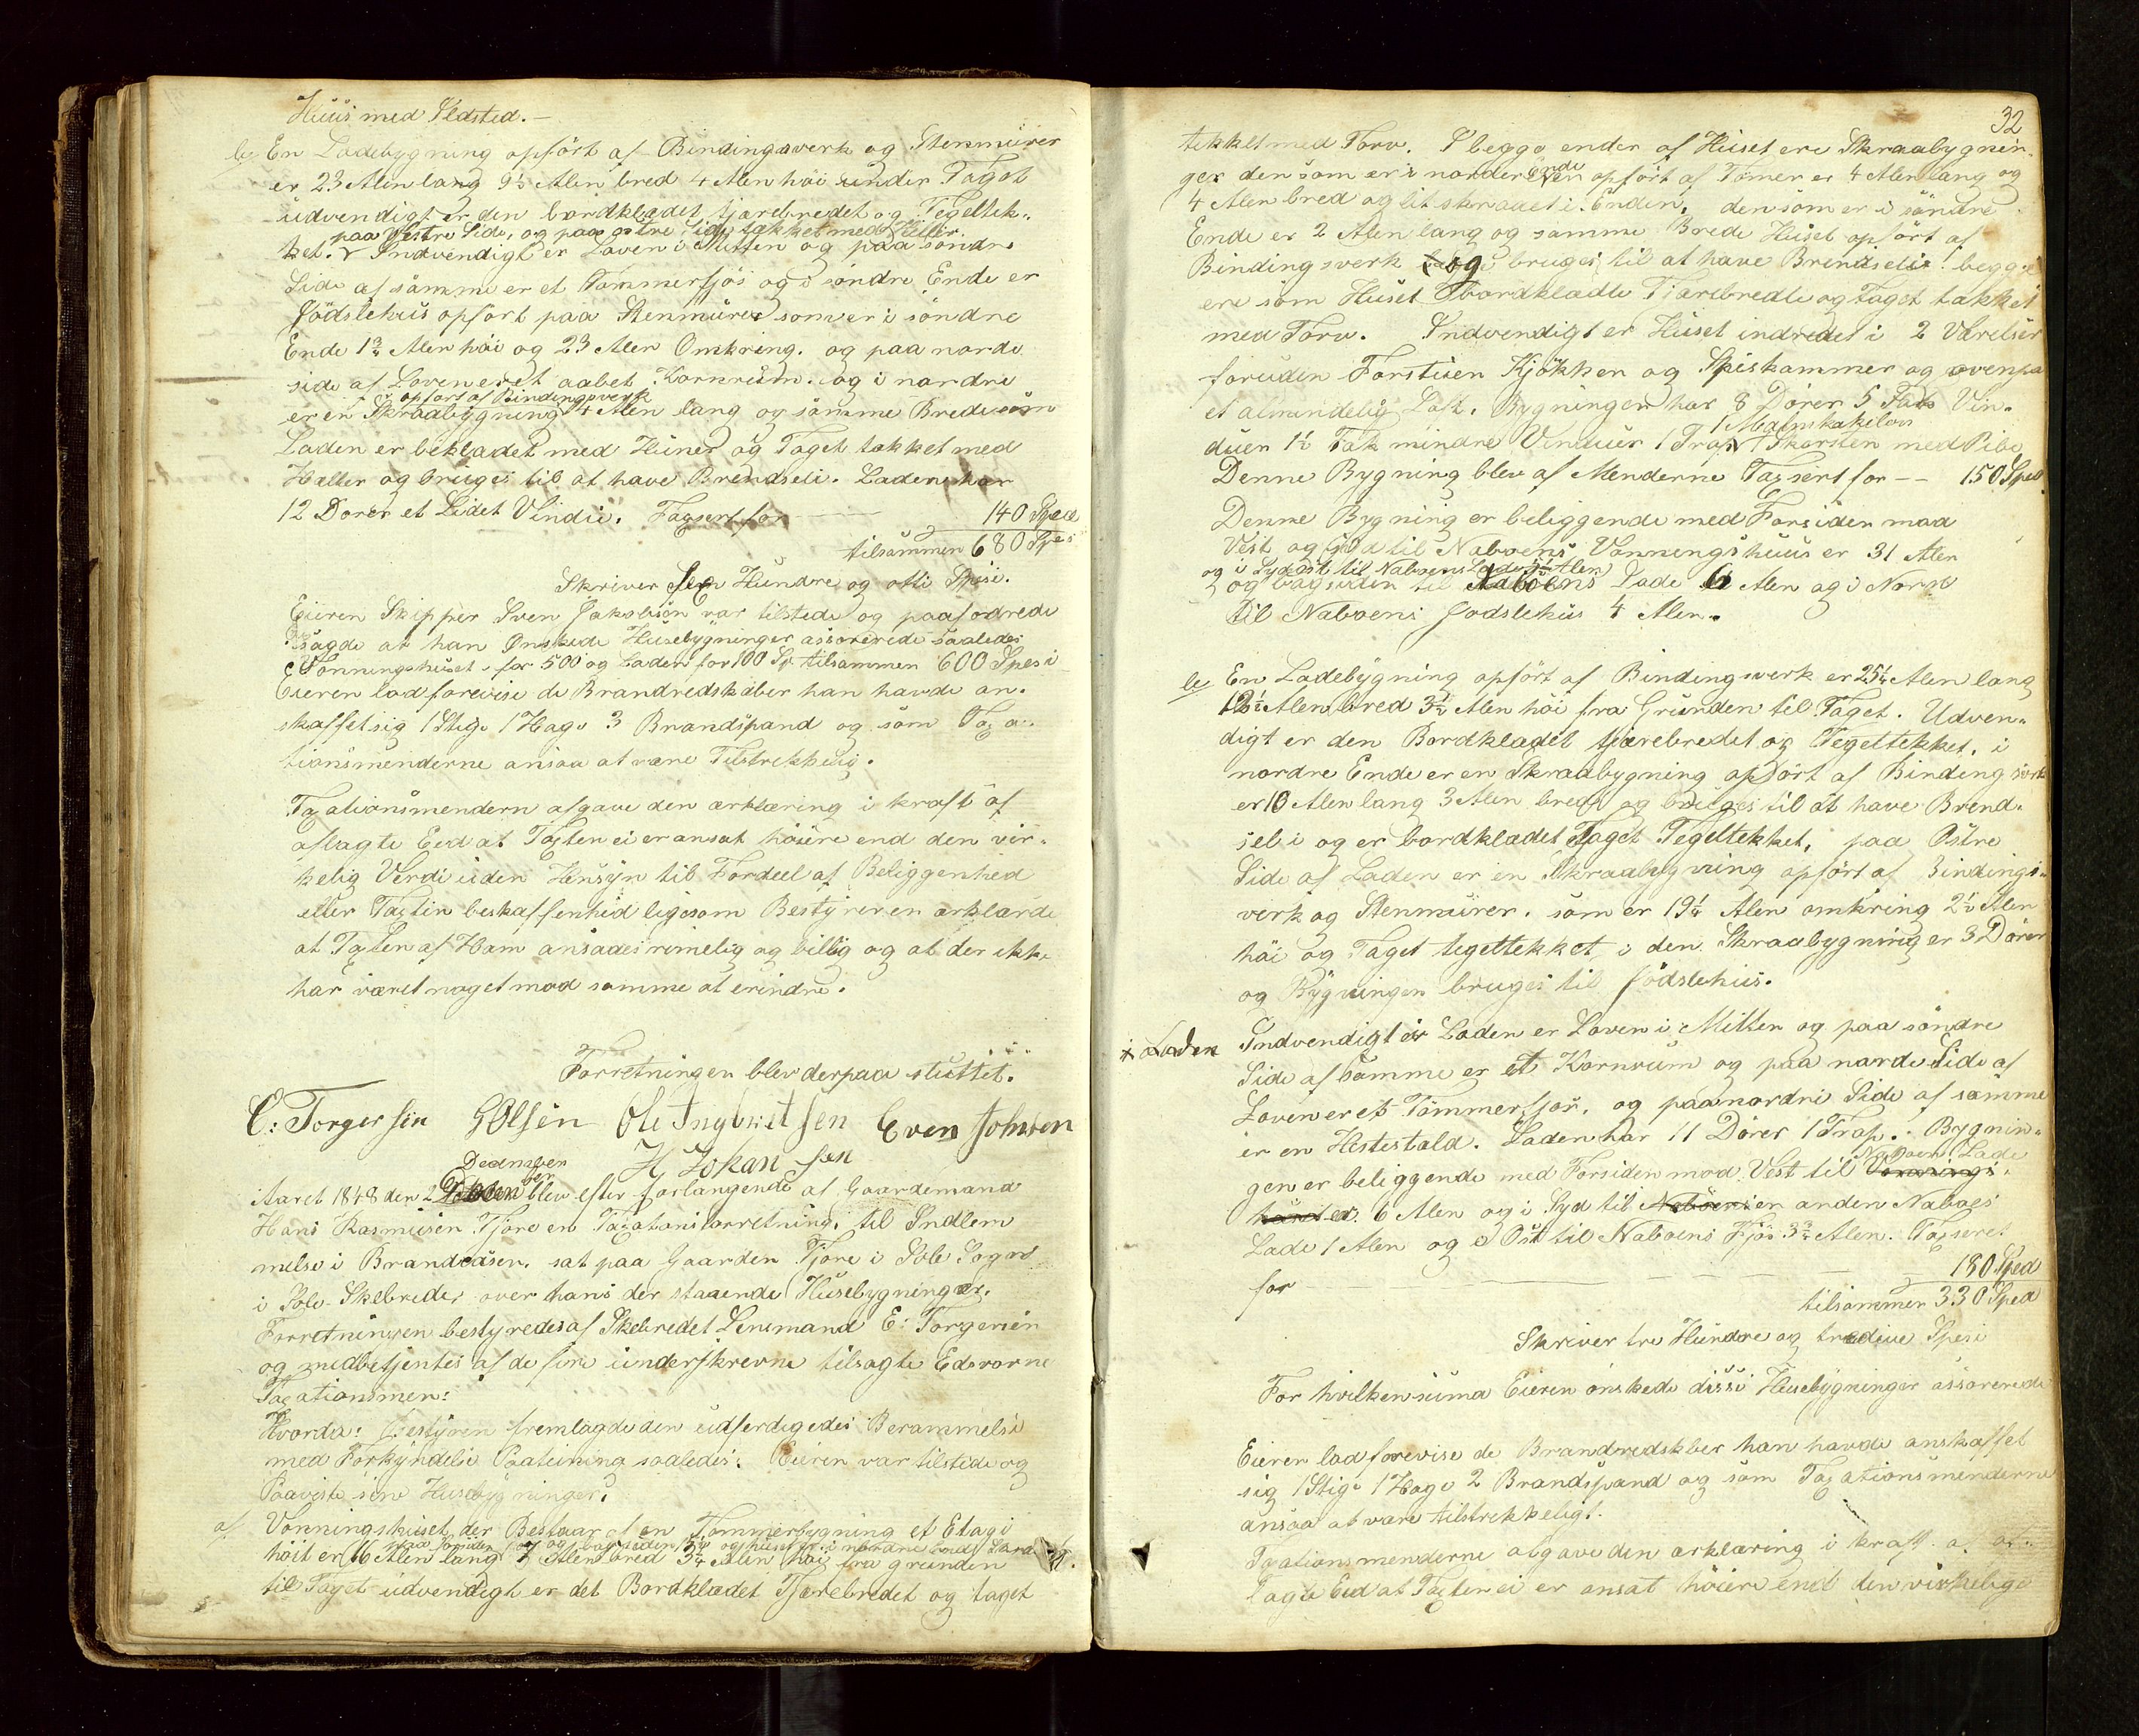 Huus med Ildsted. —
b, En Ladebygning opført af Bindingsverk og Stenmurer
er 23 Alen lang 9½ Alen bred 4 Alen høi under Taget
udvendigt er den bordklædet tjærebredet og Tegeltek-
paa Vestre Side, og paa østre Side tækket med Heller.
ket. Indvendigt er Loven i Mitten og paa søndre
Side af samme er et Tømmerfjøs og i søndre Ende er
Fødslehus opført paa Stenmurer som er i søndre
Ende 1¾ Alen høi og 23 Alen Omkring. og paa nordre
side af Loven er et aabet Kornrum. og i nordre
opført af Bindingsverk
er en Skraabygning 4 Alen lang og samme Brede som
Laden er bekladet med Huner og Taget takket med
Heller og bruges til at have Brendseli. Laden har
12 Dører et Lidet Vindu. Taxsert for — 140 Sped
tilsammen 680 Spes
Skriver sex Hundre og otti Spesi.
Eieren Skipper Sven Jakobsen var tilstede og paafodrede
sagde at han Ønskede Husebygninger assorerede saaledes
Vonningshuset for 500 og Laden for 100 Sp tilsammen 600 Spesi
Eieren lod forevise de Brandredskaber han havde an-
skaffet sig 1 Stige 1 Hage 3 Brandspand og som Taxa-
tionsmenderne ansaa at være Tilstrekkelig.
Taxationsmendern afgave den ærklæring i kraft af
aflagte Eed at Taxten ei er ansat høiere end den vir-
kelig Verdi uden Hensyn til Fordeel af Beliggenhed
eller Taxtin beskaffenhed ligesom Bestyreren ærklærde
at Taxten af Ham ansaaes rimelig og billig og at der ikke
har været noget mod samme at erindre.
Forretningen blev derpaa sluttet.
E: Torgersen GOlsen Ole Ingbretsen Even Johnsen
H Johansen
December
Aaret 1848 den 2 blev efter forlangende af Gaardemand
Hans Rasmusen Tjore en Taxationsforretning til Indlem
melse i Brandcasen. sat paa Gaarden Tjore i Sole Sogn
i Sole Skebrede, over hans der staaende Husebygninger.
Forretningen bestyredes af Skebredet Lensmand E: Torgersen
og medbetjentes af de fire underskrevne tilsagte Edsvorne
Taxationsmen:
Hvorda: Bestyren fremlagde den udferdigedes Berammelse
med Forkyndelse Paateining saaledes: Eieren var tilstede og
Paaviste sine Husebygninger.
a, Vonningshuset der Bestaar af en Tømmerbygning et Etagi
høit er 16 Alen lang 7 Alen bred 3¼ Alen høi fra grunden
til Taget udvendigt er det Bordklædet Tjærebredet og taget
32
tekket med Torv. I begge ender af Huset ere Skraabygnin-
Ende
ger den som er i norder opført af Tømer er 4 Alen lang og
4 Alen bred og lit skraaet i Enden, den som er i søndre
Ende er 2 Alen lang og samme Brede Huset opført af
Bindingsverk og bruges til at have Brendseli. begge
ere som Huset bordkladte Tjærebredte og Taget takket
med Torv. Indvendigt er Huset indredet i 2 Værelser
foruden Forstuen Kjøkken og Spiskammer og ovenpaa
et almindelig Loft. Bygningen har 8 Dører 5 Fag Vin-
1 Malmkakelovn
duer 1½ Fak mindre Vinduer 1 Trap 1 Skorsten med Pibe
Denne Bygning blev af Menderne Taxsert for — 150 Sped
Denne Bygning er beliggende med Forsiden mod
Vest og Syd til Naboens Vonningshuus er 31 Alen
og i Sydost til Naboens Lade 5½ Alen
og bagsiden til Naboens Lade 6 Alen og i Nord
til Naboens Fødslehus 4 Alen.
b, En Ladebygning opført af Bindingsverk er 25¼ Alen lang
12½ Alen bred 3½ Alen høi fra Grunden til Taget. Udven-
digt er den Bordkladet tjærebredet og Tegeltekket. i
nordre Ende er en Skraabygning opført af Bindingsverk
er 10 Alen lang 3 Alen bred og bruges til at have Brend-
seli og er bordkladet Taget Tegeltekket, paa Østre
Side af Laden er en Skraabygning opført af Bindings-
verk og Stenmurer. som er 19¼ Alen omkring 2½ Alen
høi og Taget tegeltekket, i den Skraabygning er 3 Dører
og Bygningen bruges til Fødslehus.
i Laden Indvendigt er Laden er Loven i Mitten og paa søndre
Side af samme er et Kornrum og paa nordre Side af
Loven er et Tømmerfjos, og paa nordre Side af samme
er en Hestestald. Laden har 11 Dører 1 Trap. Bygnin-
Naboens Lade
gen er beliggende med Forsiden mod Vest til Vonnings-
huset er 6 Alen og i Syd til Naboens en anden Naboes
Lade 1 Alen og i Øst til Naboens Fjøs 3¾ Alen. Taxseret
for — 180 Sped
tilsammen 330 Sped
Skriver tre Hundre og tredive Spesi
For hvilken suma Eieren ønskede disse Husebygninger assorerede
Eieren lod forevise de Brandredskber han havde anskaffet
sig 1 Stige 1 Hage 2 Brandspand og som Taxationsmenderne
ansaa at være tilstrekkeligt.
Taxationsmenderne afgave den ærklæring i kraft af af-
lagte Eed at Taxten ei er ansat høiere end den virkelige